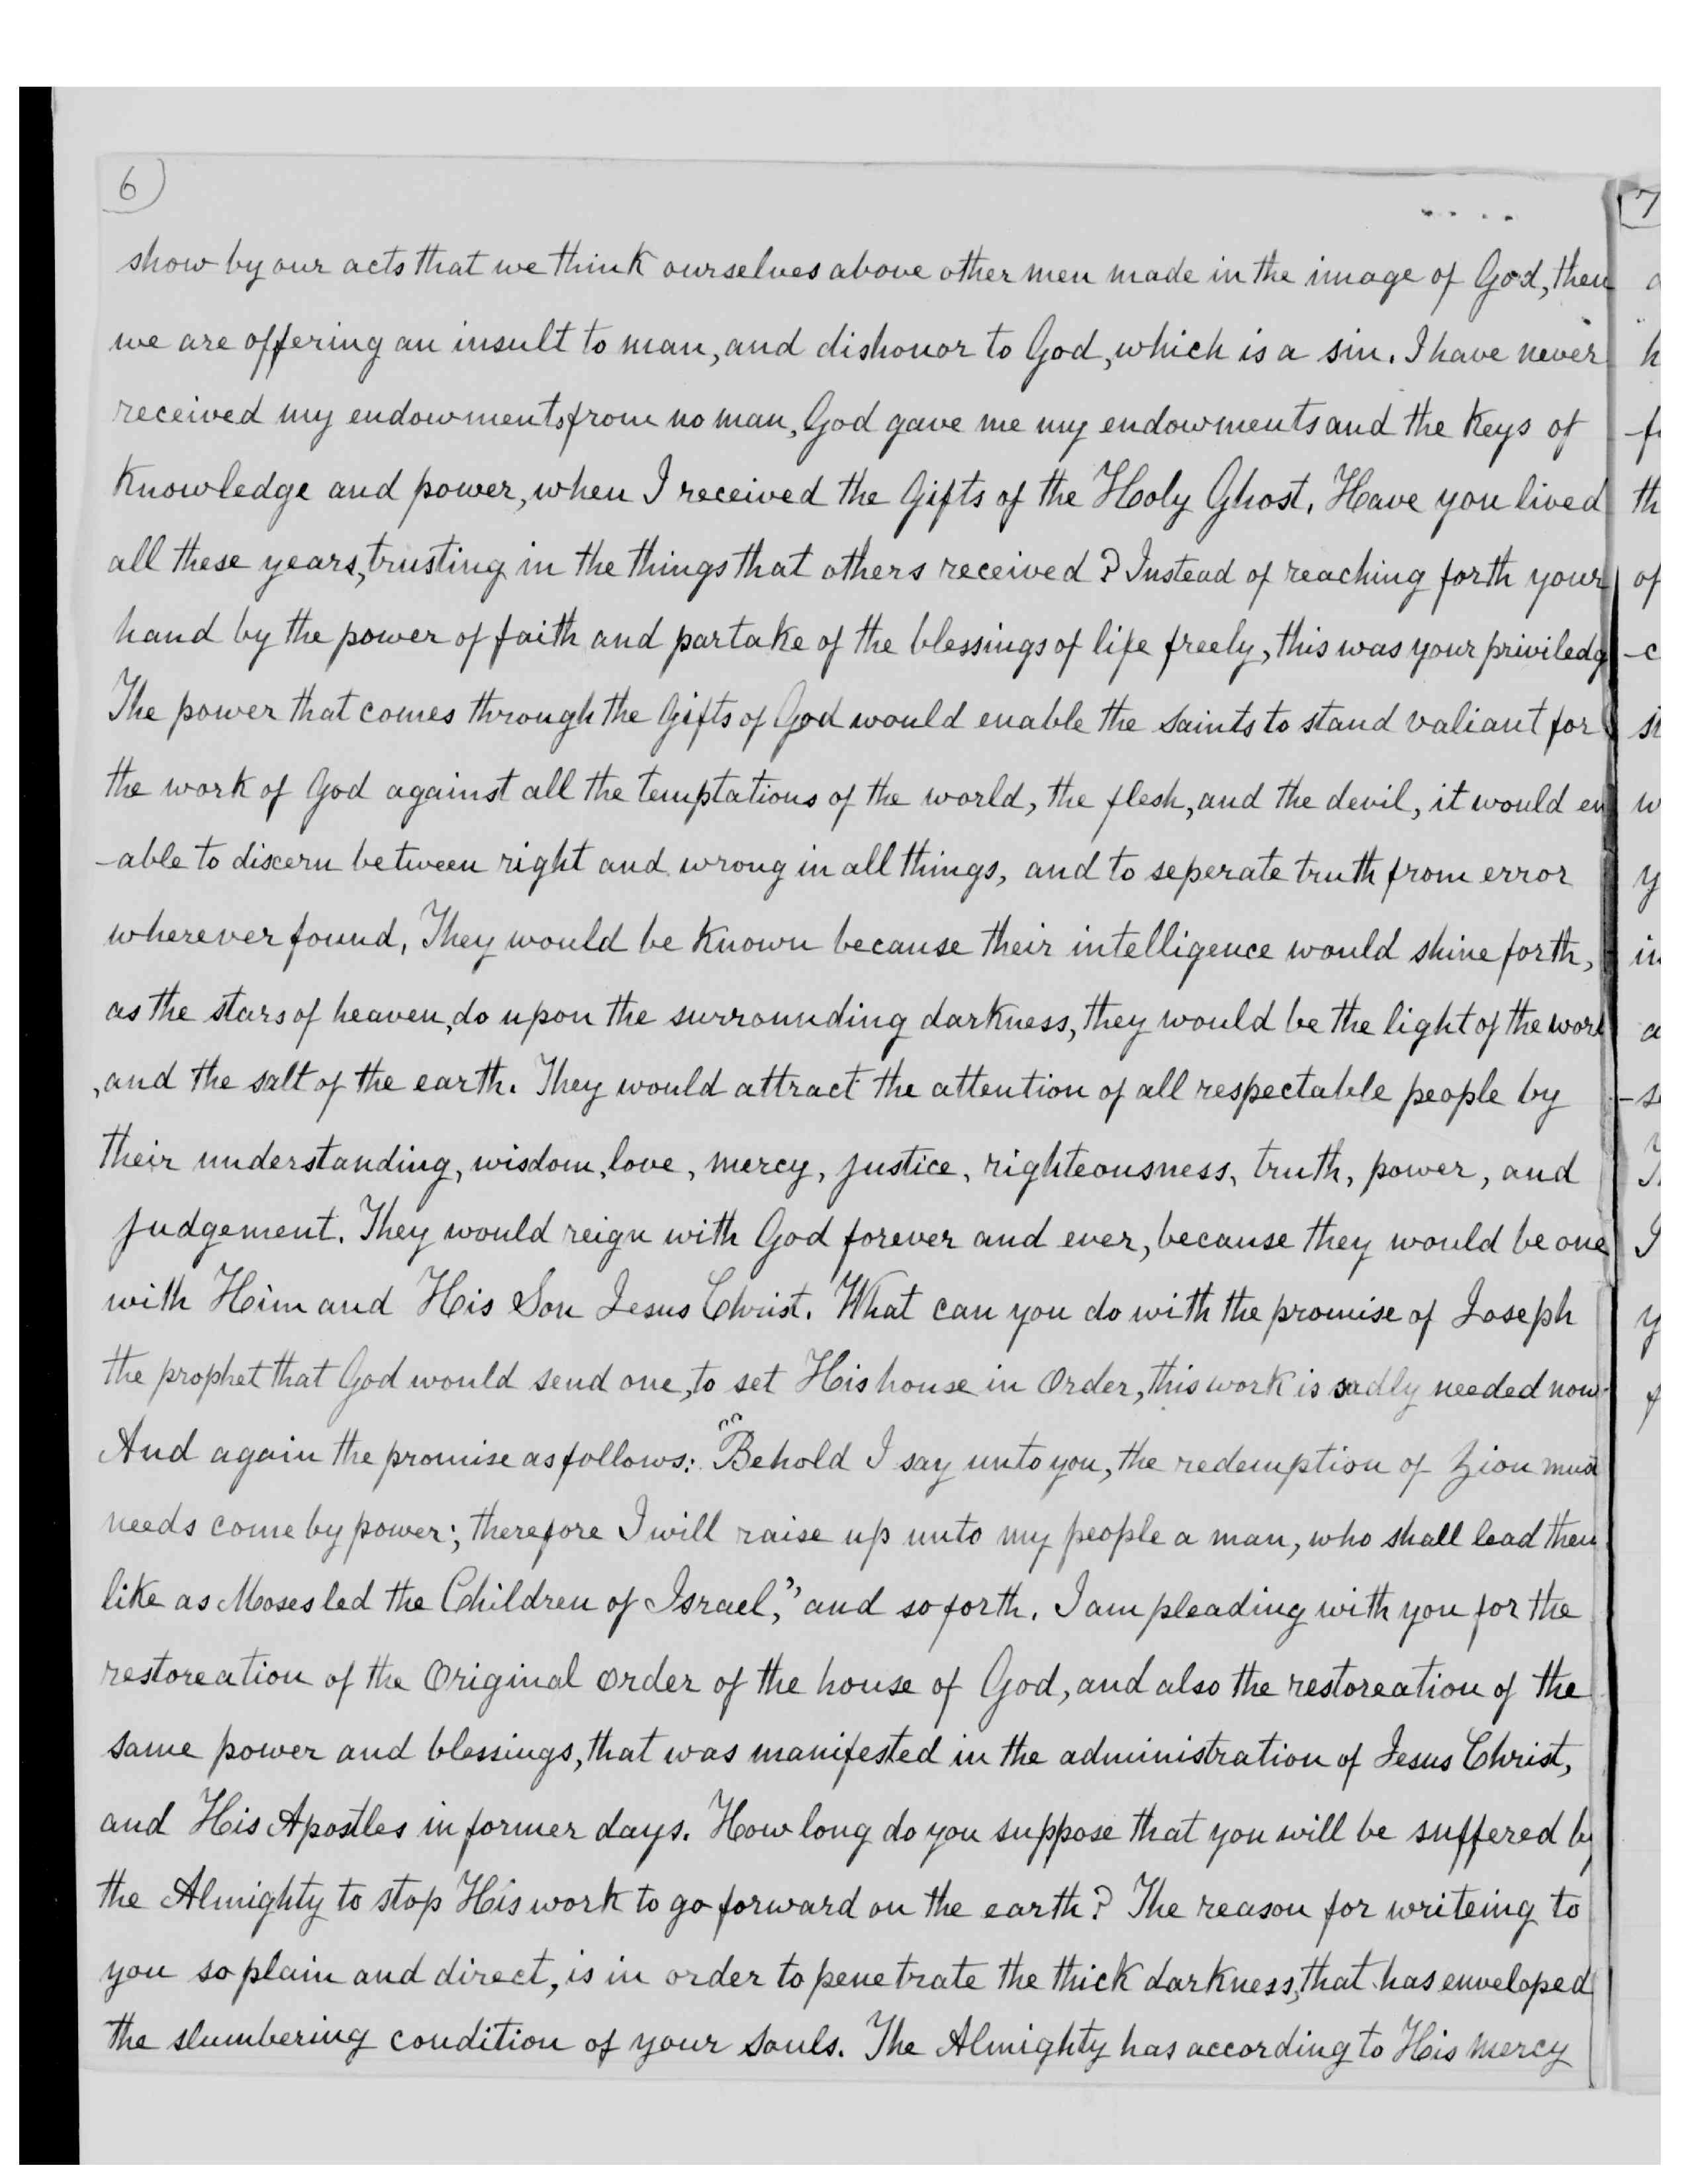 6)
show by our acts that we think ourselves above other men made in the image of God, then
we are offering an insult to man, and dishonor to God, which is a sin. I have never
received my endowments from no man, God gave me my endowments and the Keys of
Knowledge and power, when I received the Gifts of the Holy Ghost. Have you lived
all these years, trusting in the things that others received? Instead of reaching forth your
hand by the power of faith and partake of the blessings of life freely, this was your priviledg
The power that comes through the Gifts of God would enable the saints to stand valiant for
the work of God against all the temptations of the world, the flesh, and the devil, it would en
-able to discern between right and wrong in all things, and to seperate truth from error
wherever found, They would be Known because their intelligence would shine forth,
as the stars of heaven, do upon the surrounding darkness, they would be the light of the worl
, and the salt of the earth. They would attract the attention of all respectable people by
their understanding, wisdom, love, mercy, justice, righteousness, truth, power, and
judgement. They would reign with God forever and ever, because they would be one
with Him and His Son Jesus Christ. What can you do with the promise of Joseph
the prophet that God would send one, to set His house in Order, this work is sadly needed now
And again the promise as follows: "Behold I say unto you, the redemption of Zion must
needs come by power; therefore I will raise up unto my people a man, who shall lead them
like as Moses led the Children of Israel," and so forth. I am pleading with you for the
restoreation of the Original order of the house of God, and also the restoreation of the
same power and blessings, that was manifested in the administration of Jesus Christ,
and His Apostles in former days. How long do you suppose that you will be suffered by
the Almighty to stop His work to go forward on the earth? The reason for writeing to
you so plain and direct, is in order to penetrate the thick darkness, that has enveloped
the slumbering condition of your souls. The Almighty has according to His mercy
7